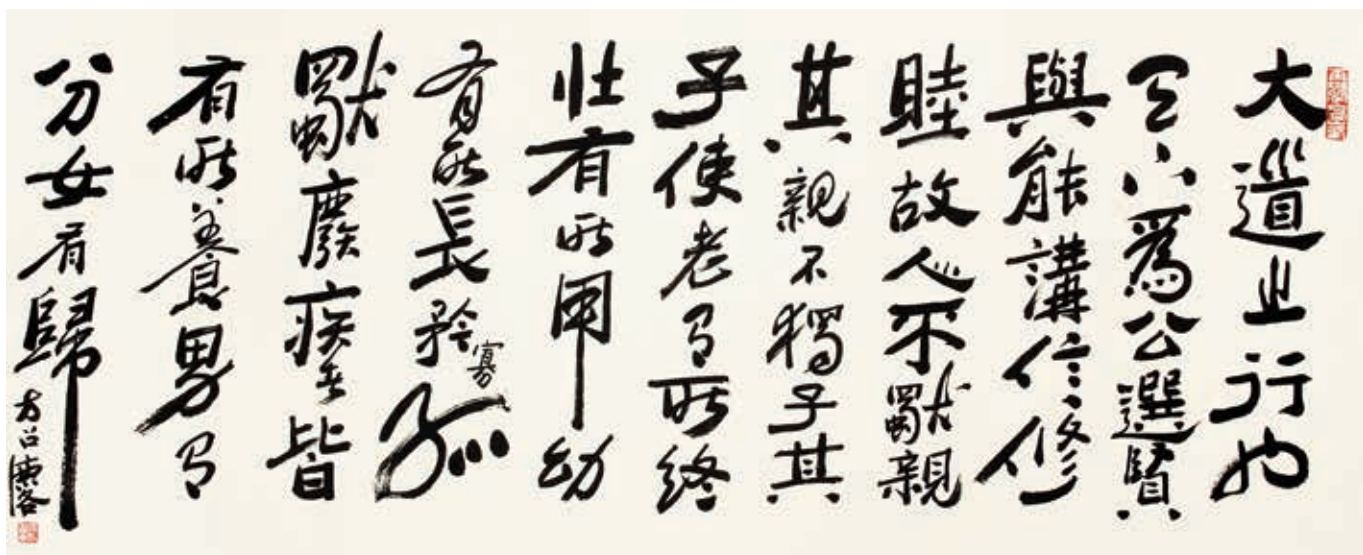 大道之行也
天下為公選賢
與能講信修
睦故人不獨親
其親不獨子其
子使老有所終
壯有所用幼
有所長矜寡孤
獨廢疾者皆
有所養男有
分女有歸
方召麐